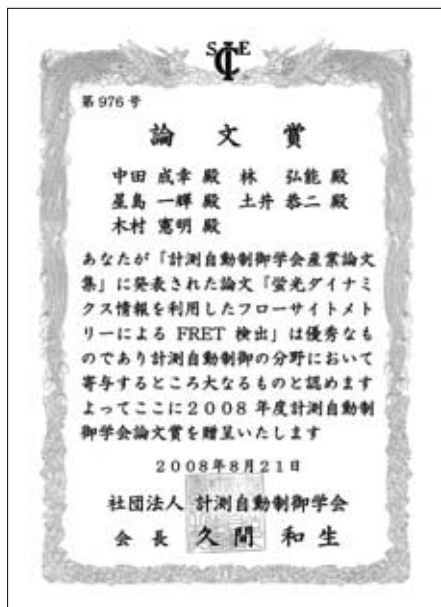 SICE
第976号
論文賞
中田 成幸 殿 林 弘能 殿
星島 一輝 殿 土井 恭二 殿
木村 憲明 殿
あなたが「計測自動制御学会産業論文
集」に発表された論文「蛍光ダイナミ
クス情報を利用したフローサイトメト
リーによる FRET 検出」は優秀なも
のであり計測自動制御の分野において
寄与するところ大なるものと認めます
よってここに2008 年度計測自動制
御学会論文賞を贈呈いたします
2008年8月21日
社団法人 計測自動制御学会
会長 久間 和生